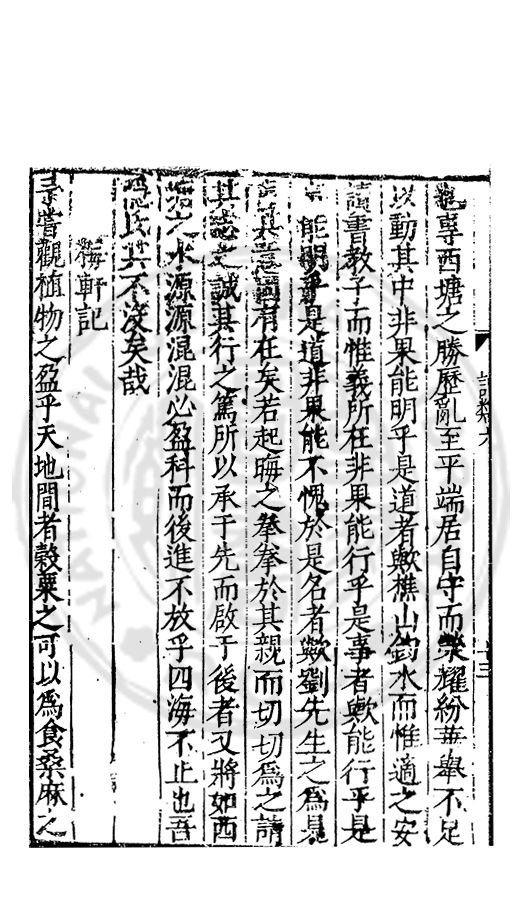 專西塘之勝歷亂至平端居自守而榮耀紛華舉不足
以動其中非果能明乎是道者歟樵山釣水而惟適之安
讀書教子而惟義所在非果能行乎是事者歟能行乎是
能明乎是道非果能不愧於是名者歟劉先生之為是
有在矣若起晦之拳拳於其親而切切為之請
其志之誠其行之篤所以承于先而啟于後者又將如西
塘之水源源混混必盈科而後進不放乎四海不止也吾
氏其不沒矣哉
梅軒記
嘗觀植物之盈乎天地間者穀粟之可以為食桑麻之